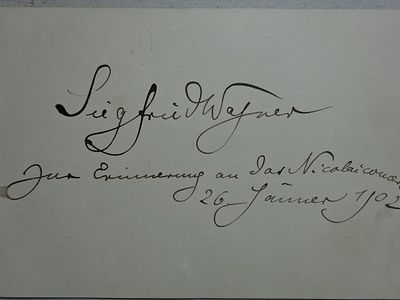 Siegfried Wagner
Zur Erinnerung an das Nicolaiconcer
26. Jänner 1902